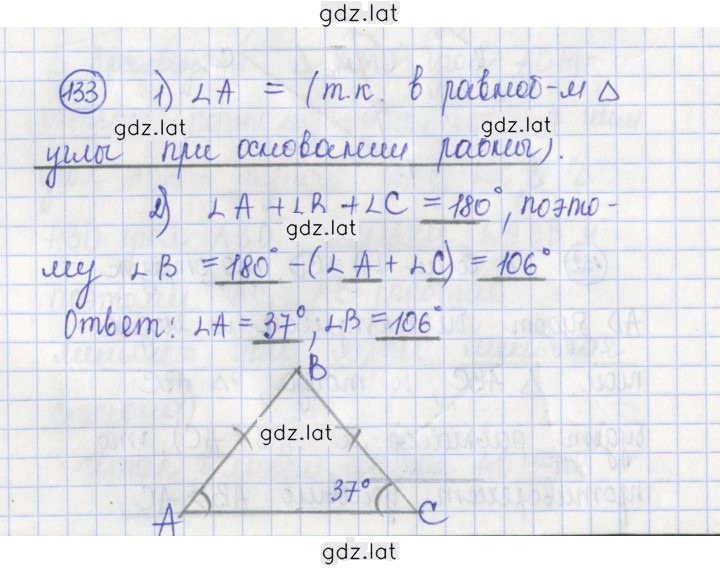 gdz.lat
133 1) ∠A = (т.к. в равноб-м △
gdz.lat gdz.lat
углы при основании равны).
2) ∠A + ∠B + ∠C = 180°, поэто-
gdz.lat
му ∠B = 180° - (∠A + ∠C) = 106°
Ответ: ∠A = 37°, ∠B = 106°
B
gdz.lat
37°
A C
gdz.lat